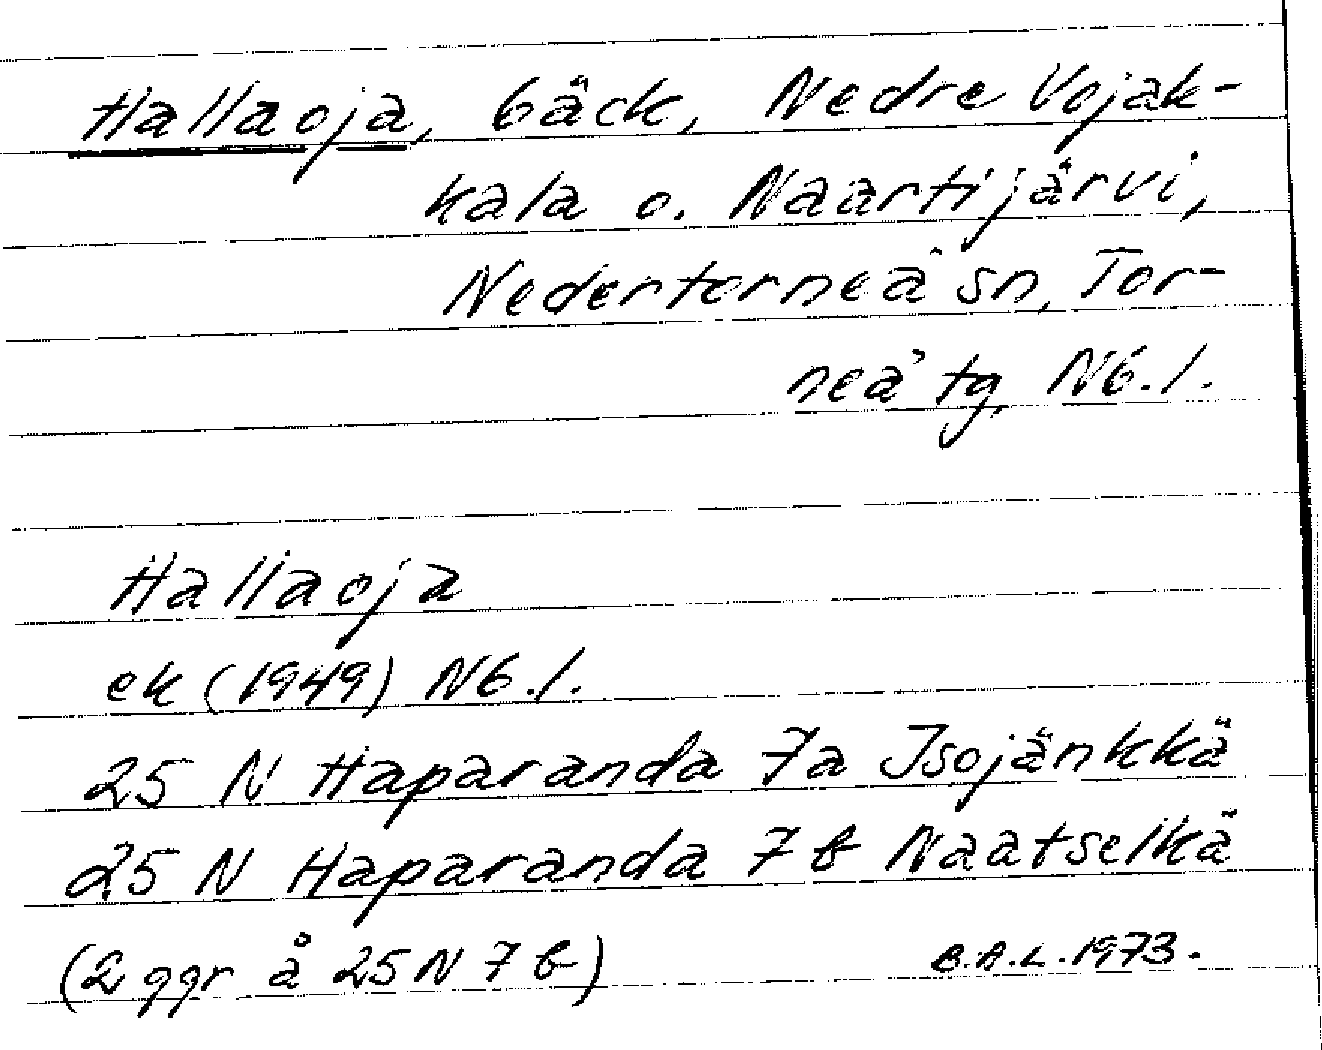 Hallaoja, bäck, Nedre Vojak-
kala o. Naartijärvi,
Nedertorneå sn, Tor-
neå tg, Nb.l.
Hallaoja
ek (1949) Nb.l.
25 N Haparanda 7a Isojänkkä
25 N Haparanda 7b Naatselkä
(2 ggr å 25 N 7 b)
B.A.L. 1973.